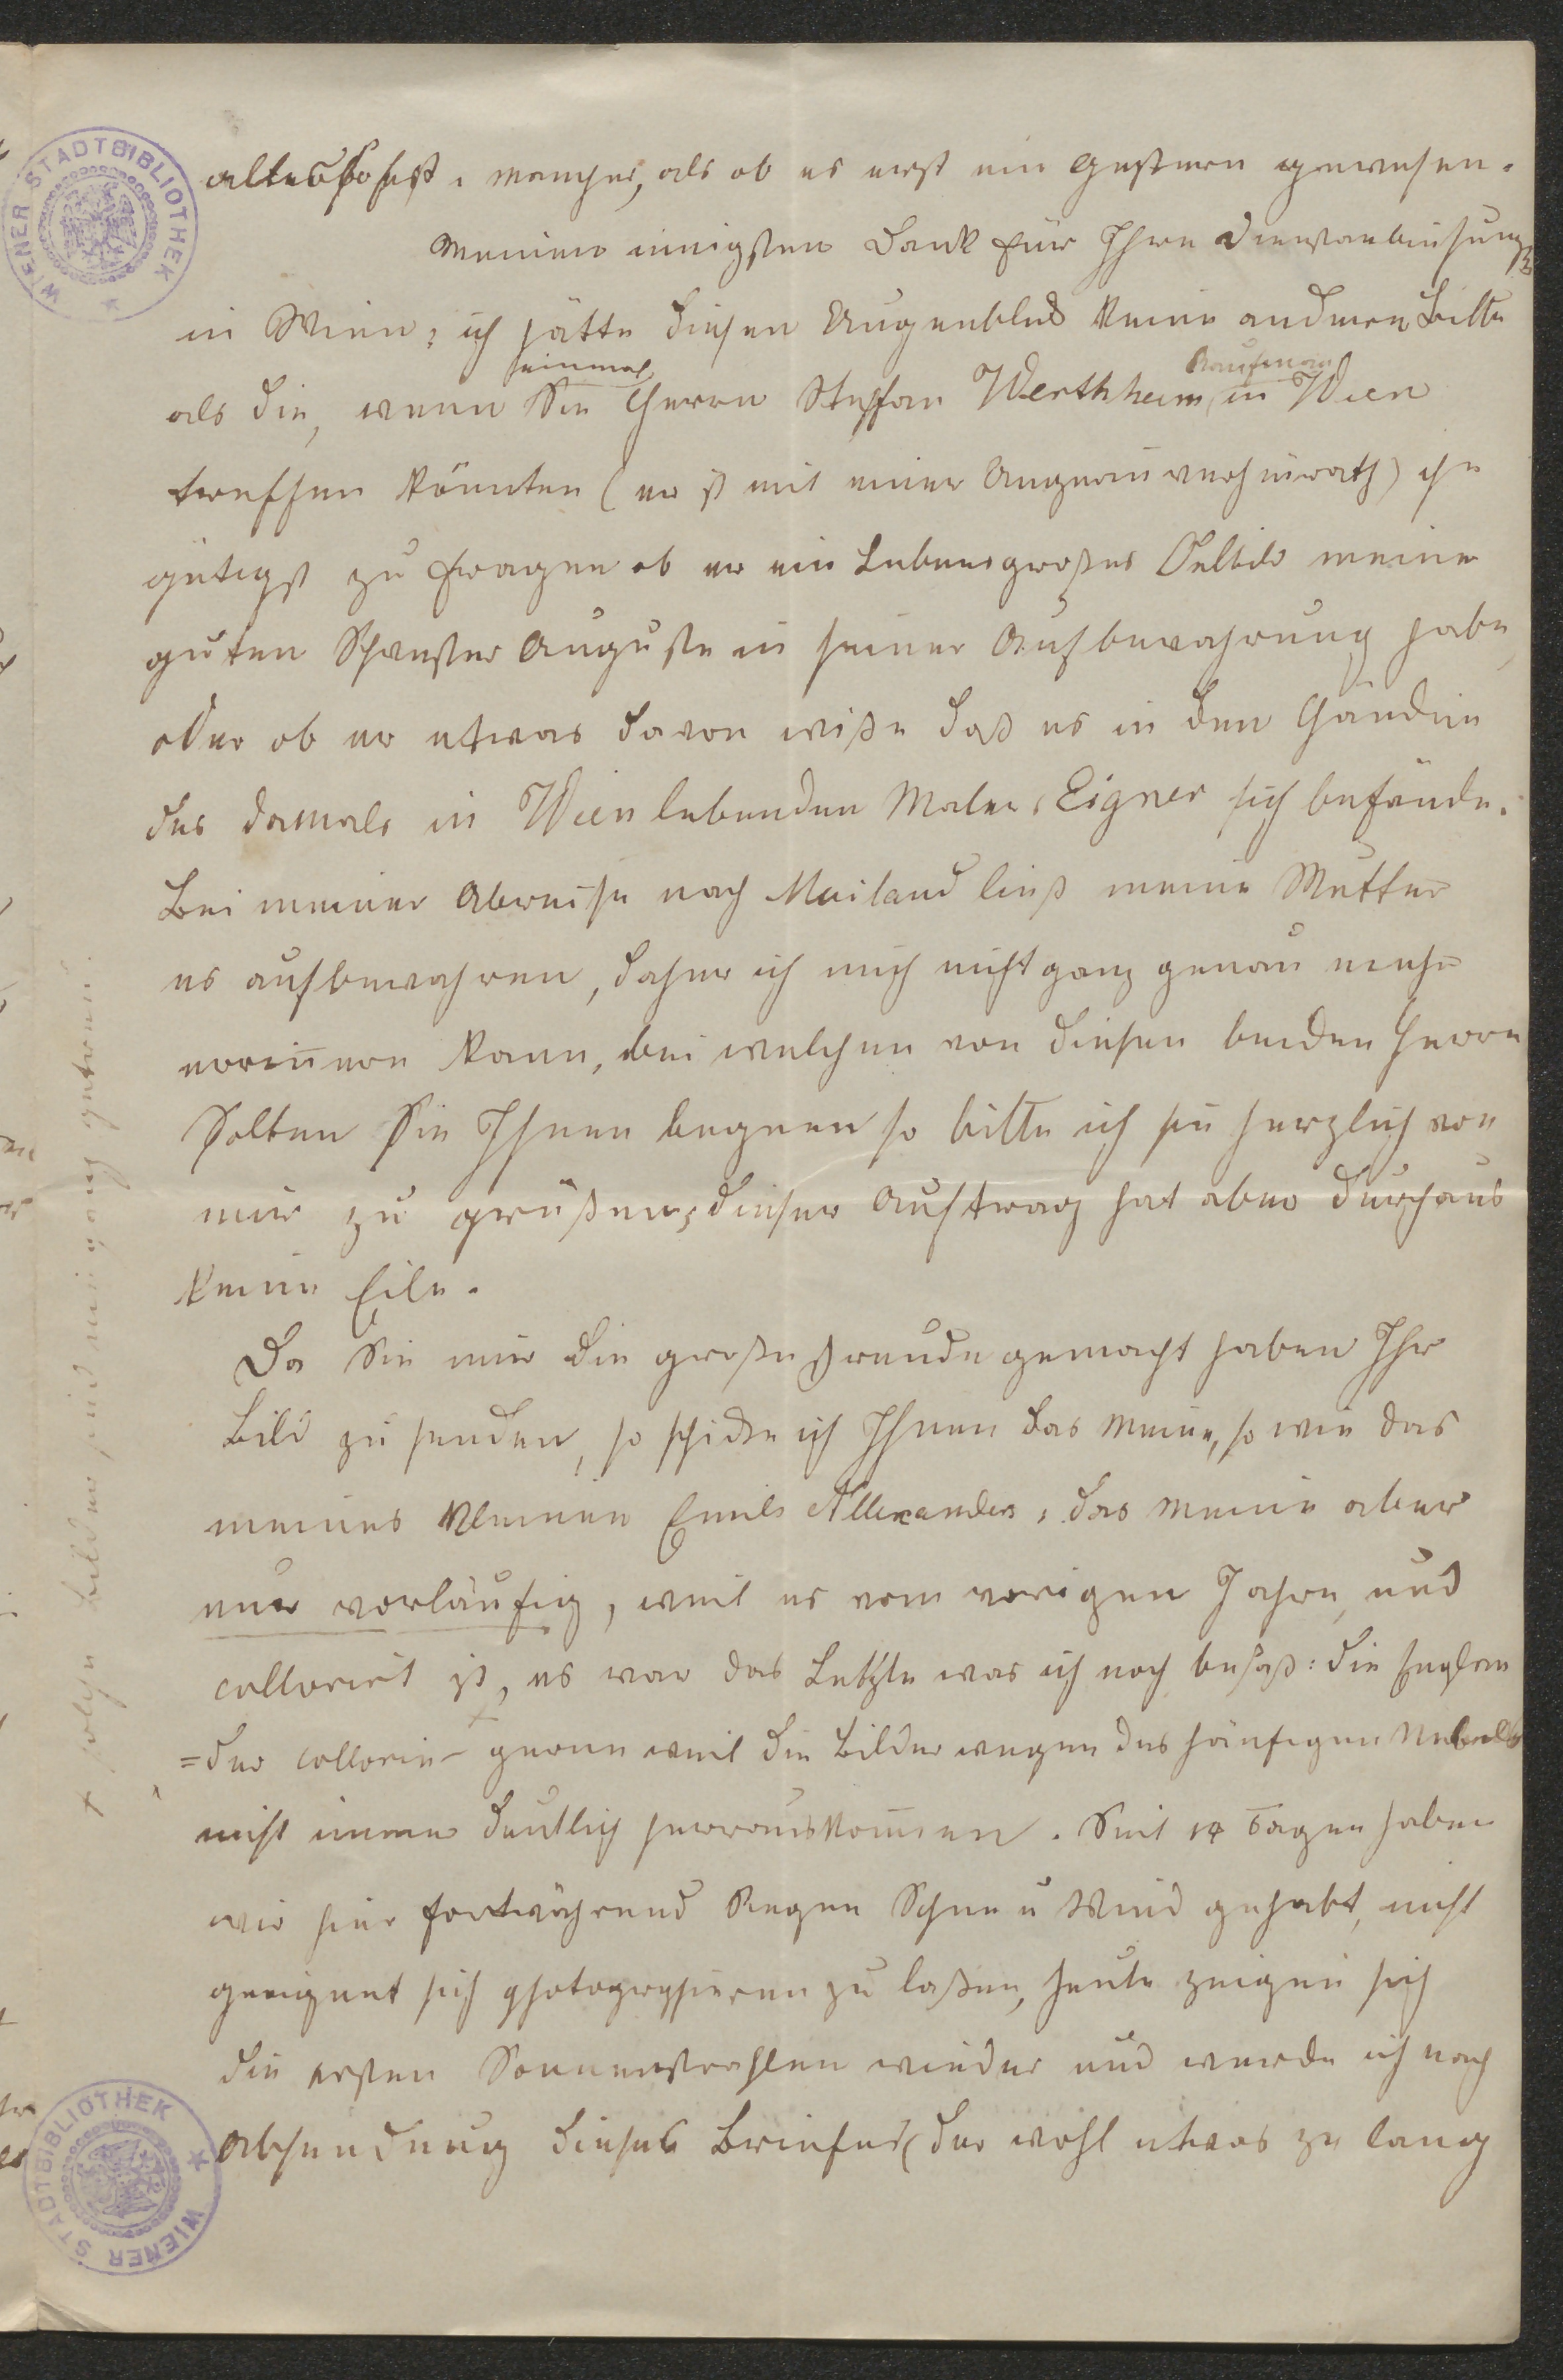 alles so fest, manches, als ob es erst ein gestern gewesen.
Meinen innigsten Dank für Ihre Diensterbiethung
in Wien; ich hätte diesen Augenblick keine andere Bitte
einmal Kaufmann
als die, wenn Sie Herrn Steffan Werthheim, in Wien
treffen könnten (er ist mit einer Ungarin verheirath) ihn
gütigst zu fragen ob er ein Lebensgroßes Oelbild meiner
guten Schwester Auguste in seiner Aufbewahrung habe,
oder ob er etwas davon wiße daß es in den Händen
des damals in Wien lebenden Malers Eigner sich befände.
Bei meiner Abreise nach Mailand ließ meine Mutter
es aufbewahren, daher ich mich nicht ganz genau mehr
erinnern kann, bei welchem von diesen beiden Herrn
Solten Sie Ihnen begnen so bitte ich sie herzlich von
mir zu grüßen, dieser Auftrag hat aber durchaus
keine Eile.
Da Sie mir die große Freude gemacht haben Ihr
Bild zu senden, so schicke ich Ihnen das Meine, so wie das
meines kleinen Emils Allexanders, das Meine aber
nur vorläufig, weil es vom vorigen Jahre, und
collorirt ist, es war das Letzte was ich noch besaß: die Englän
=der collorin gerne weil die Bilder wegen des häufigen Nebels
nicht immer deutlich herrauskommen. Seit 14 Tagen haben
wir hier fortwährend Regen Schne u Wind gehabt, nicht
geeignet sich photogrphieren zu laßen, heute zeigen sich
die ersten Sonnenstrahlen wieder und werde ich nach
Absendung dieses Briefes (der wohl etwas zu lang
+ solche Bilder sind nie ganz getreu.
WIENER STADTBIBLIOTHEK
WIENER STADTBIBLIOTHEK